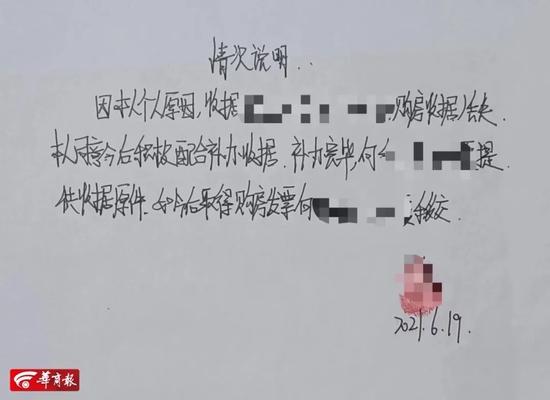 情况说明:
因本人个人原因,收据 购房收据丢失.
本人同意今后积极配合补办收据.补办完毕,向 提
供收据原件.如今后取得购房发票向 交
2021.6.19.
華商报